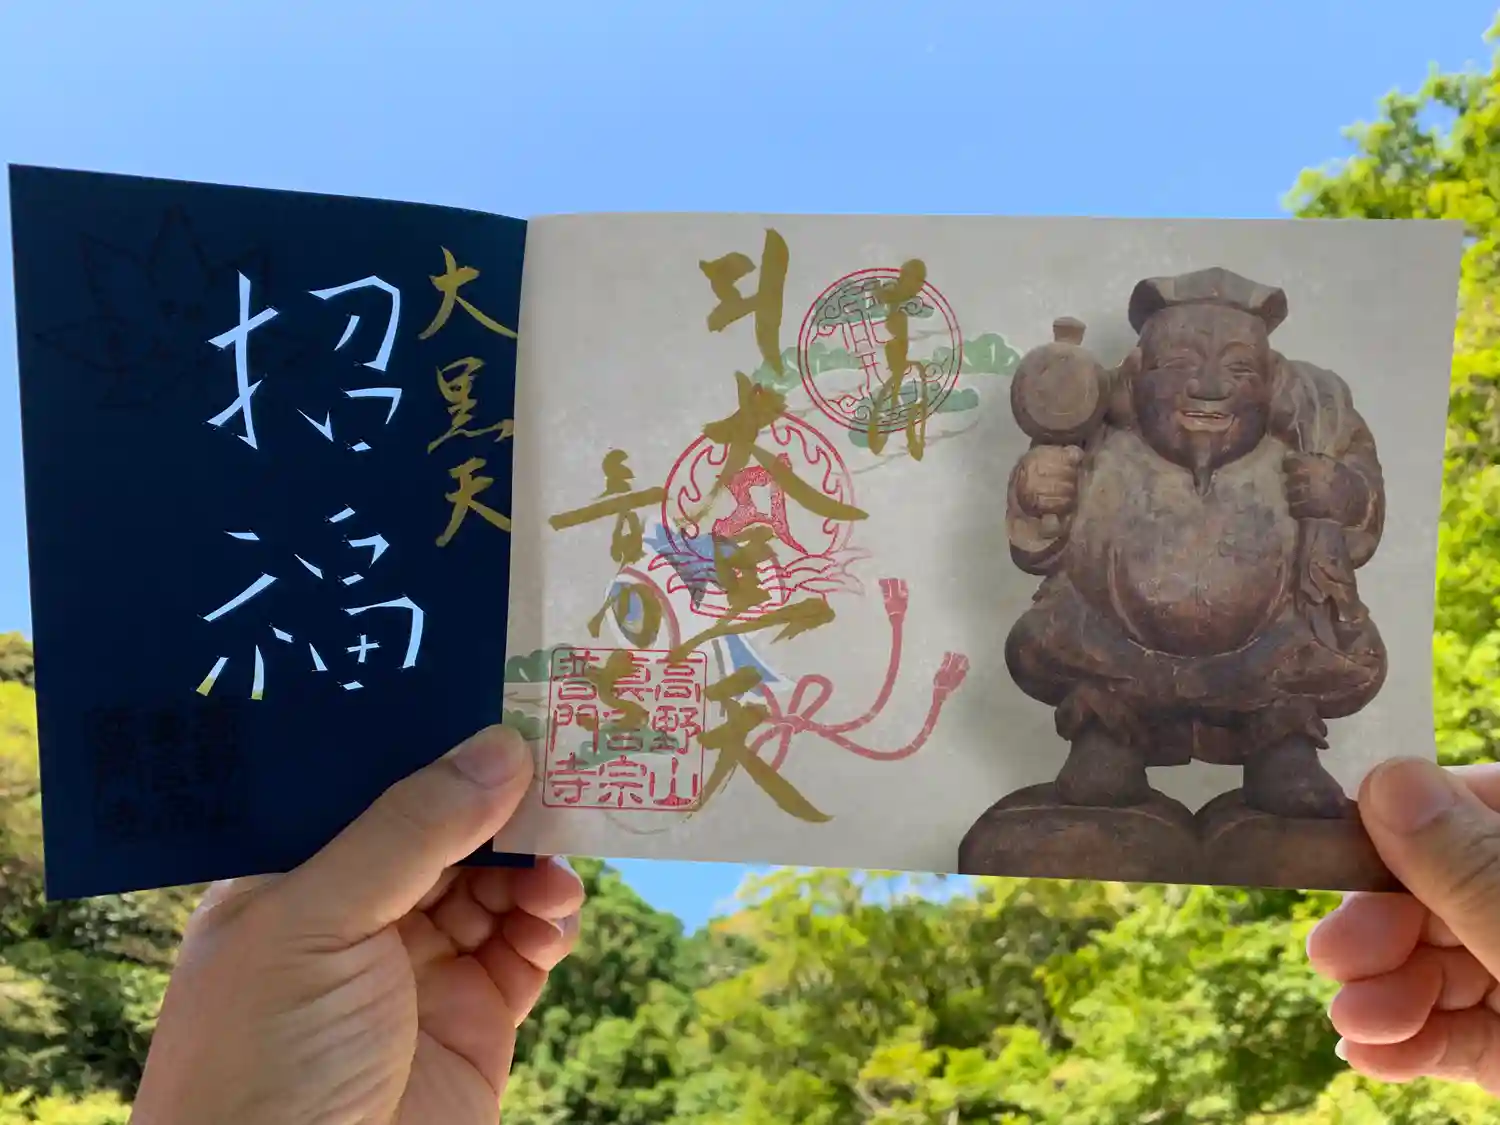 奉拝
斗大黒天
普門寺
高野山
真言宗
普門寺
大黒天
招福